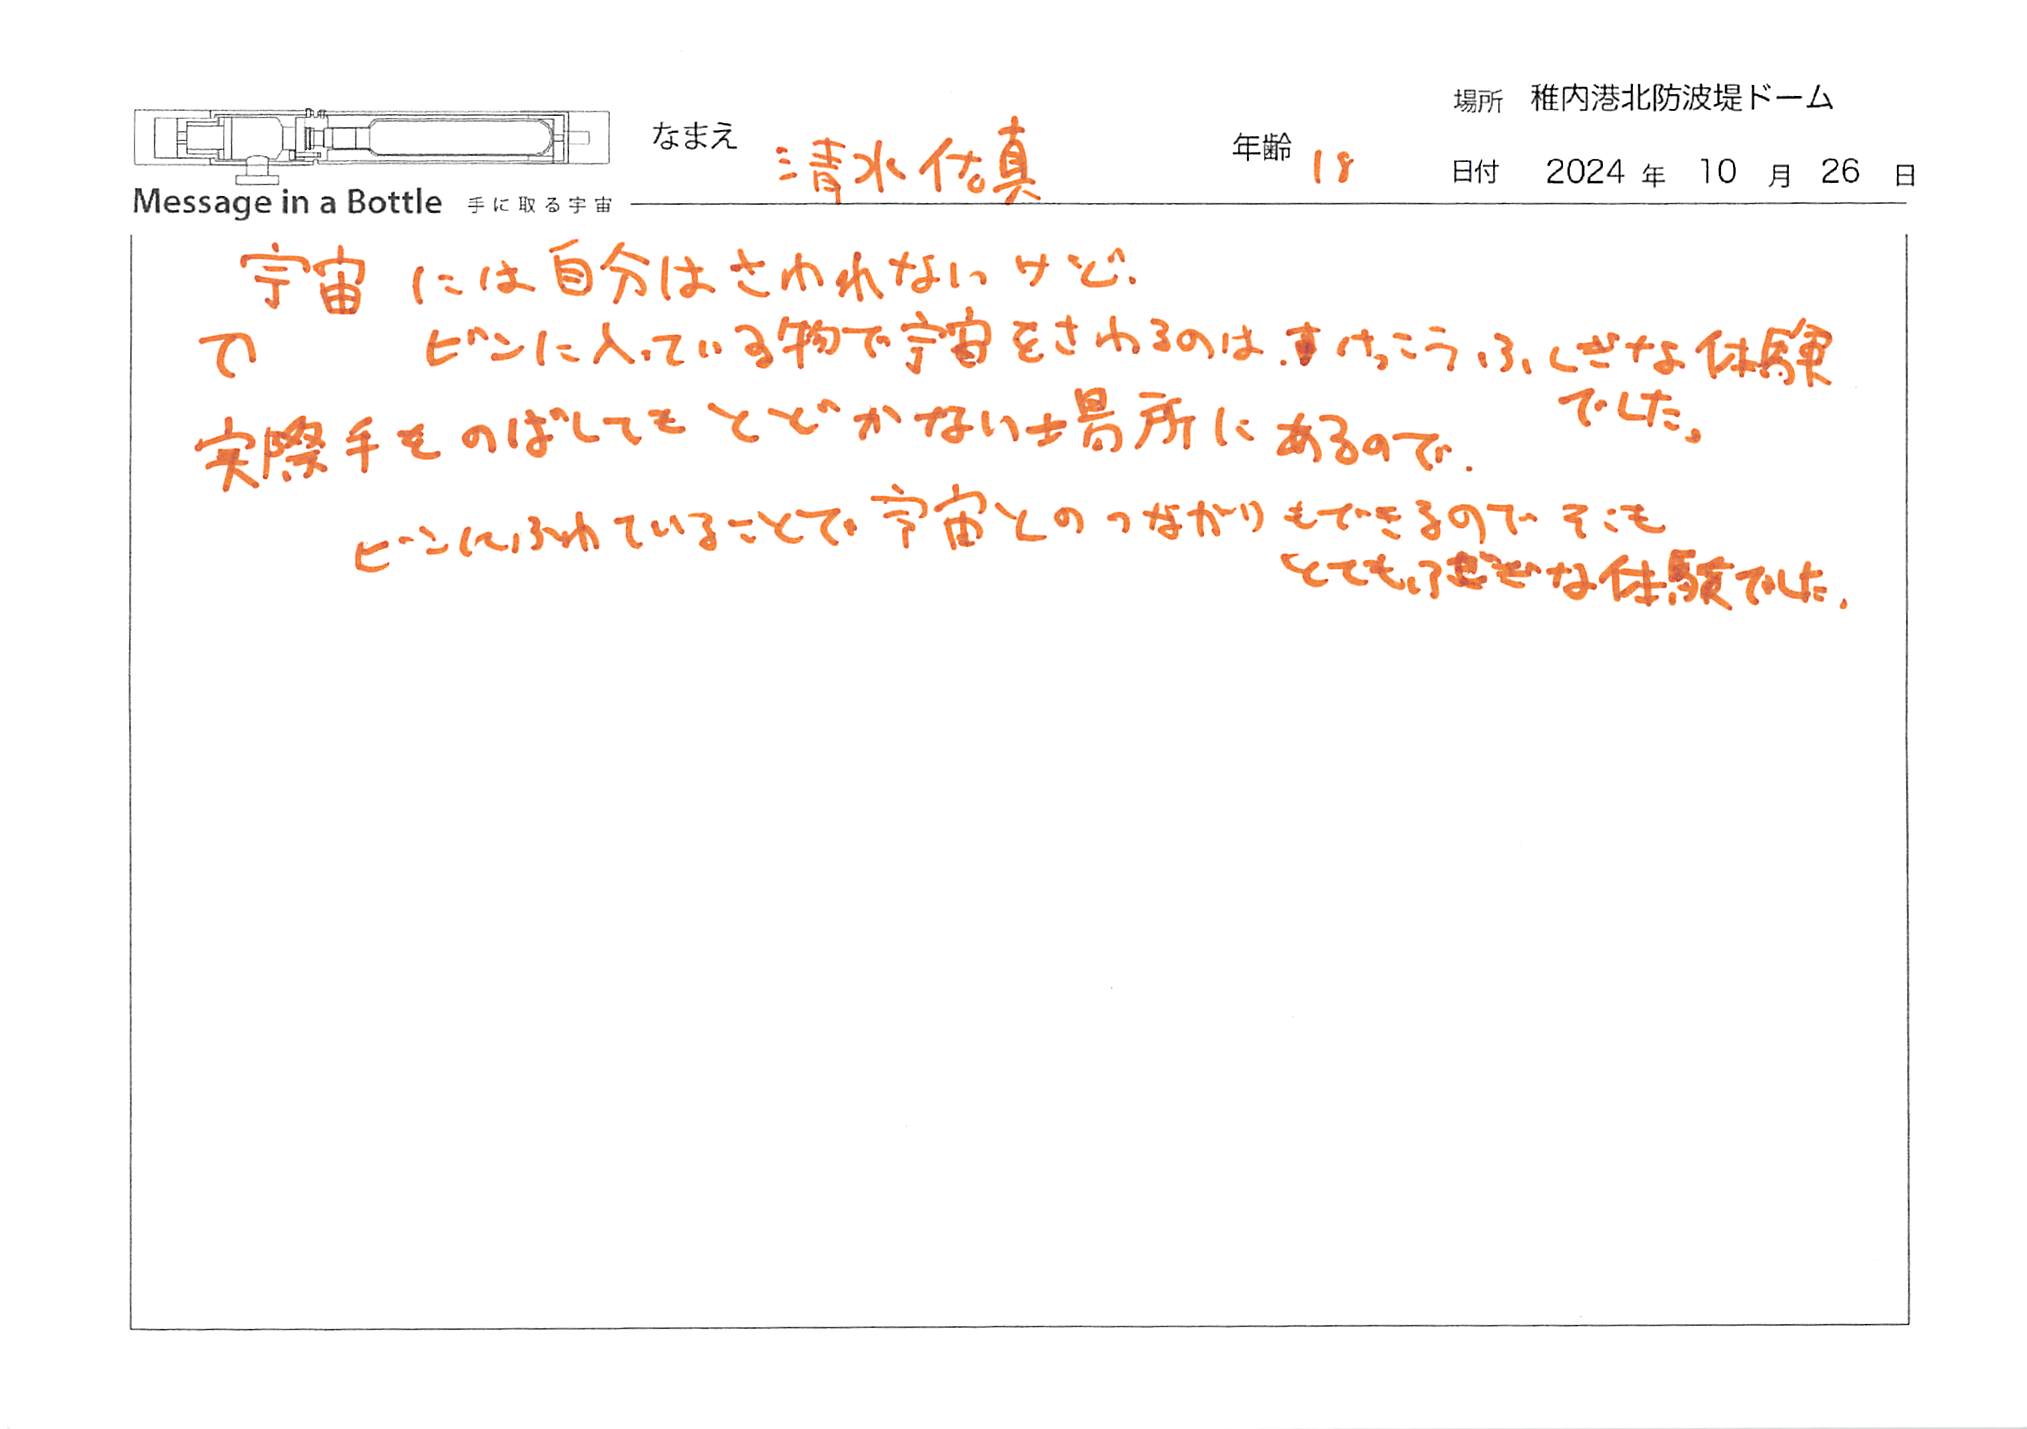 場所 稚内港北防波堤ドーム
なまえ 清水佑真 年齢 18
日付 2024 年 10 月 26 日
Message in a Bottle 手に取る宇宙
宇宙には自分はさわれないけど、
で ビンに入っている物で宇宙をさわるのは、けっこうふしぎな体験
でした。
実際手をのばしてもとどかない場所にあるので、
ビンにふれていることで宇宙とのつながりもできるのでそこも
とてもふしぎな体験でした。